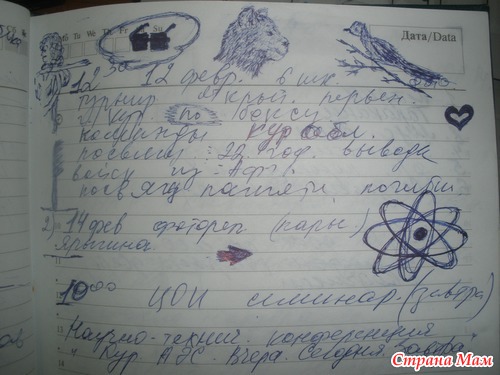 Tu We Th Fr Su
Дата/Data
12 30 12 февр. в шк
турнир открыт. первен.
по боксу
команды Кур обл.
посвящ. 22 год. вывода
войск из Афг.
посвящ памяти погибш
2) 14 фев фотореп (пары)
Ярыгина
10 00 ЦОИ семинар. (завтра)
Научно-технич. конференция
Кур АЭС - Вчера. Сегодня. Завтра
Страна Мам